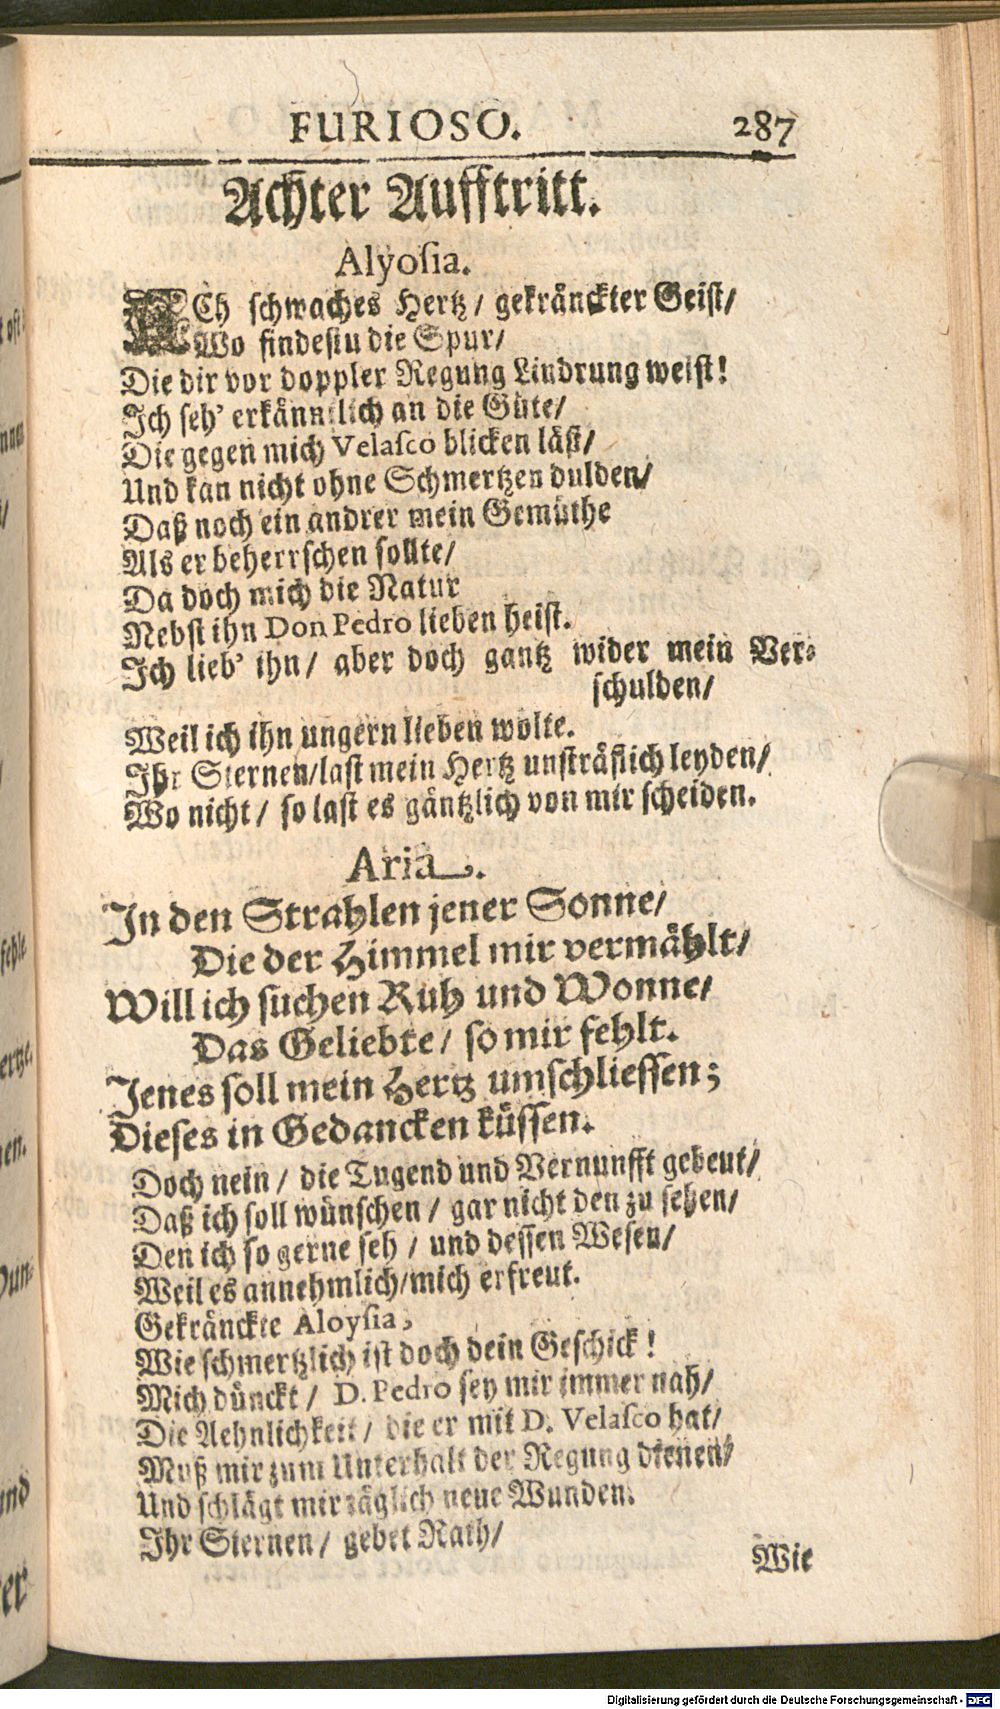 FURIOSO. 287
Achter Aufftritt.
Alyosia.
ACh schwaches Hertz / gekränckter Geist/
Wo findestu die Spur/
Die dir vor doppler Regung Lindrung weist!
Ich seh' erkänntlich an die Güte/
Die gegen mich Velasco blicken läst/
Und kan nicht ohne Schmertzen dulden/
Daß noch ein andrer mein Gemüthe
Als er beherrschen sollte/
Da doch mich die Natur
Nebst ihn Don Pedro lieben heist.
Ich lieb' ihn/ aber doch gantz wider mein Ver-
schulden/
Weil ich ihn ungern lieben wolte.
Ihr Sternen/last mein Hertz unsträflich leyden/
Wo nicht / so last es gäntzlich von mir scheiden.
Aria.
In den Strahlen jener Sonne/
Die der Himmel mir vermählt/
Will ich suchen Ruh und Wonne/
Das Geliebte / so mir fehlt.
Jenes soll mein Hertz umschliessen;
Dieses in Gedancken küssen.
Doch nein / die Tugend und Vernunfft gebeut/
Daß ich soll wünschen / gar nicht den zu sehen/
Den ich so gerne seh / und dessen Wesen/
Weil es annehmlich/mich erfreut.
Gekränckte Aloysia,
Wie schmertzlich ist doch dein Geschick!
Mich dünckt / D. Pedro sey mir immer nah/
Die Aehnlichkeit / die er mit D. Velasco hat/
Muß mir zum Unterhalt der Regung dienen/
Und schlägt mir täglich neue Wunden.
Ihr Sternen / gebet Rath/
Wie
Digitalisierung gefördert durch die Deutsche Forschungsgemeinschaft - DFG